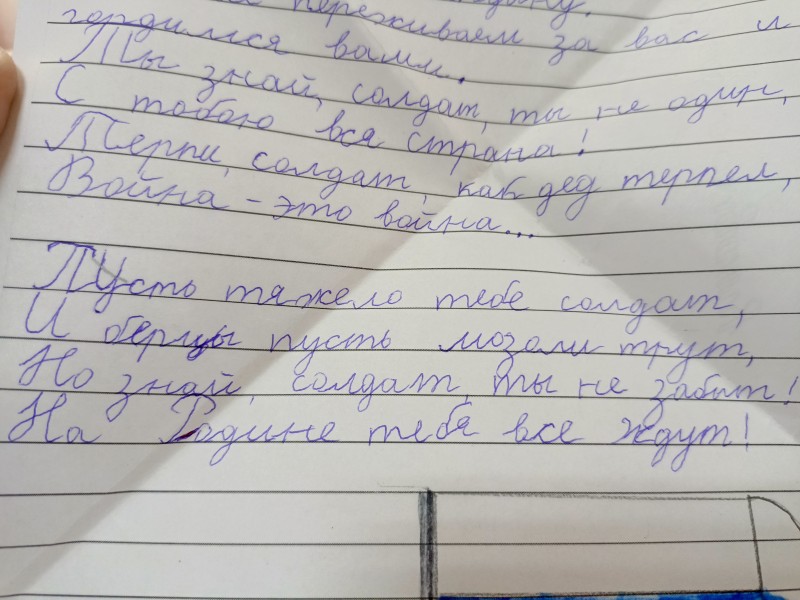 переживаем за вас и
гордимся вами.
Ты знай, солдат, ты не один,
С тобою вся страна!
Терпи, солдат, как дед терпел,
Война - это война...
Пусть тяжело тебе солдат,
И берцы пусть мозоли трут,
Но знай, солдат, ты не забыт!
На Родине тебя все ждут!